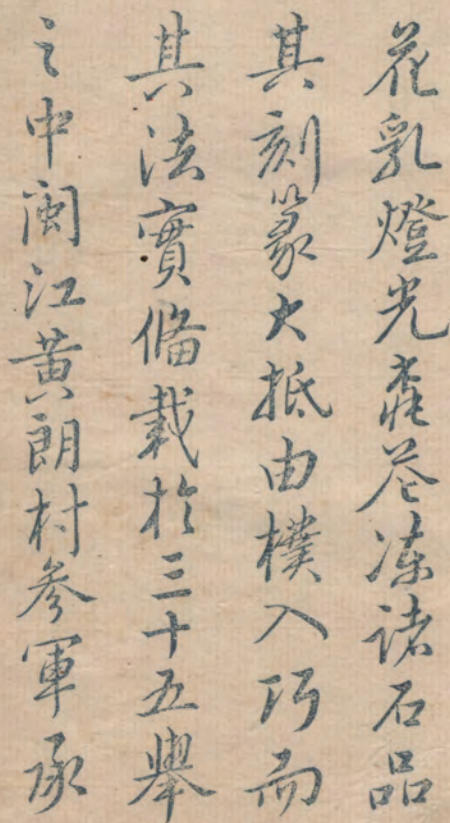 花乳燈光桃花凍諸石品
其刻篆大抵由樸入巧而
其法實備載於三十五舉
之中閩江黃朗村參軍承